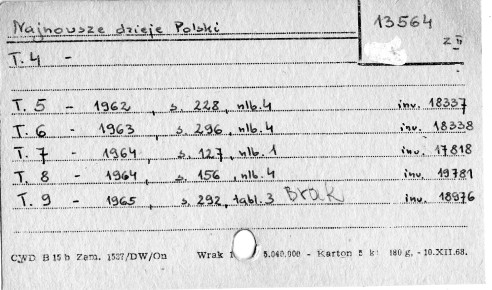 Najnowsze dzieje Polski
13564
z II
T. 4 -
T. 5 - 1962, s. 228, nlb. 4 inv. 18337
T. 6 - 1963, s. 296, nlb. 4 inv. 18338
T. 7 - 1964, s. 127, nlb. 1 inv. 17818
T. 8 - 1964, s. 156, nlb. 4 inv. 19781
T. 9 - 1965, s. 292, tabl. 3 Brak inv. 18976
CWD B 15 b Zam. 1587/DW/On Wrak 5.040.000 - Karton 180 g. - 10.XII.68.